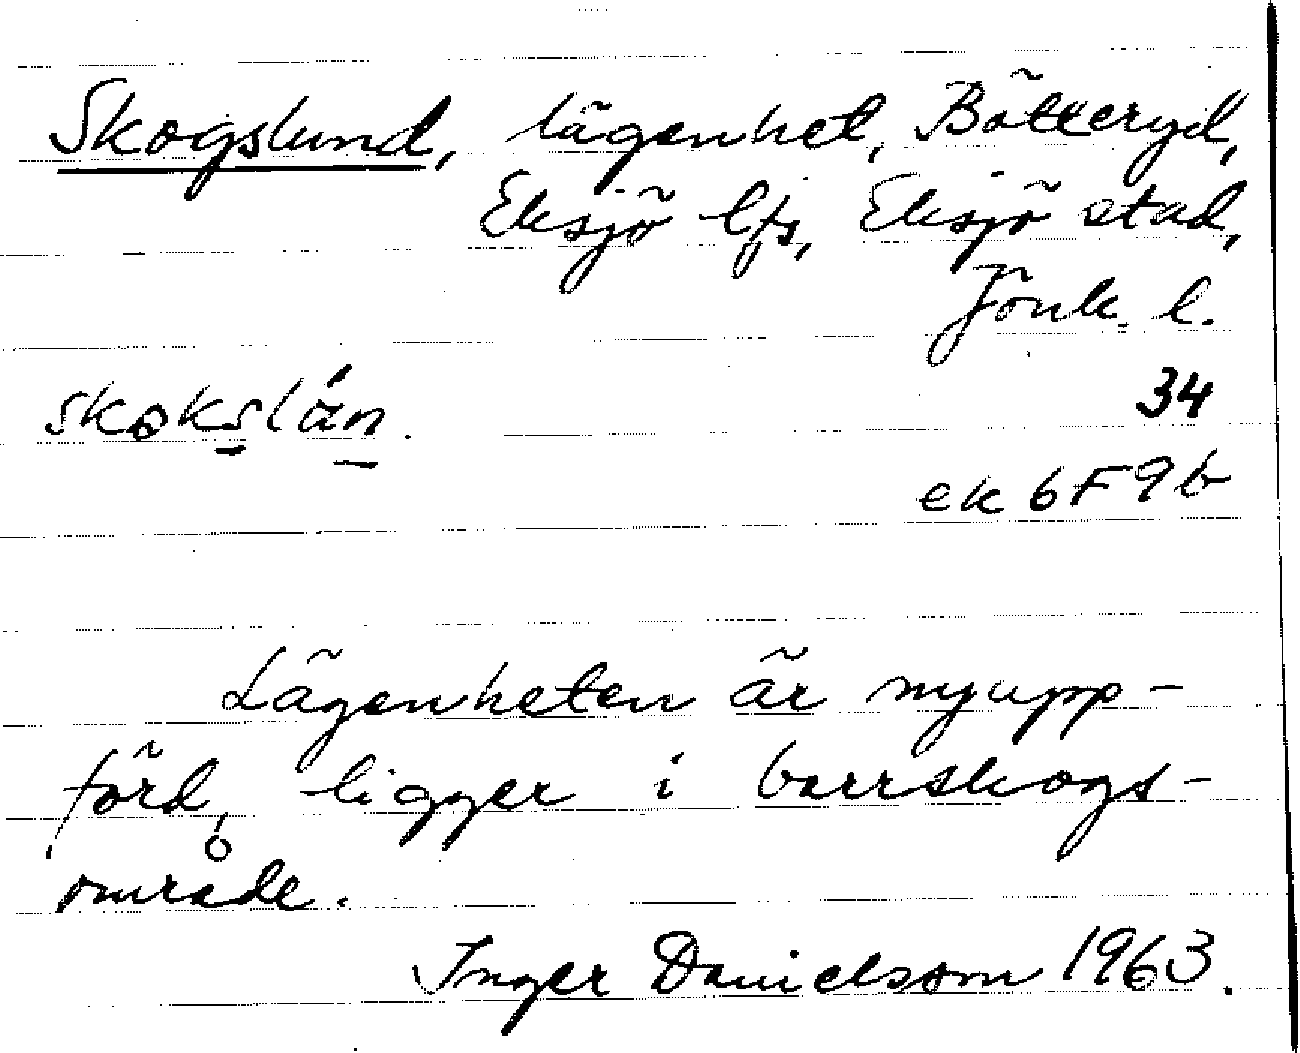 Skogslund, lägenhet, Bötteryd,
Eksjö lfs, Eksjö stad,
Jönk. l.
skɵkslán.
34
ek 6F9b
Lägenheten är nyupp-
förd, ligger i barrskogs-
område.
Inger Danielsson 1963.